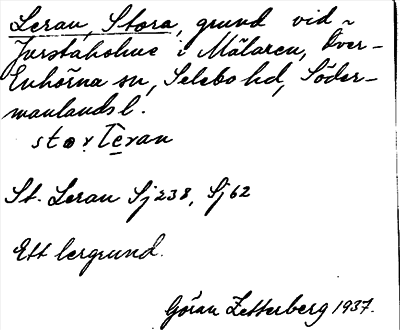 Leran, Stora, grund vid
Jurstaholme i Mälaren, Över-
Enhörna sn, Selebo hd, Söder-
manlands l.
stor Leran
St. Leran Sj 238, Sj 62
Ett lergrund.
Göran Zetterberg 1937.